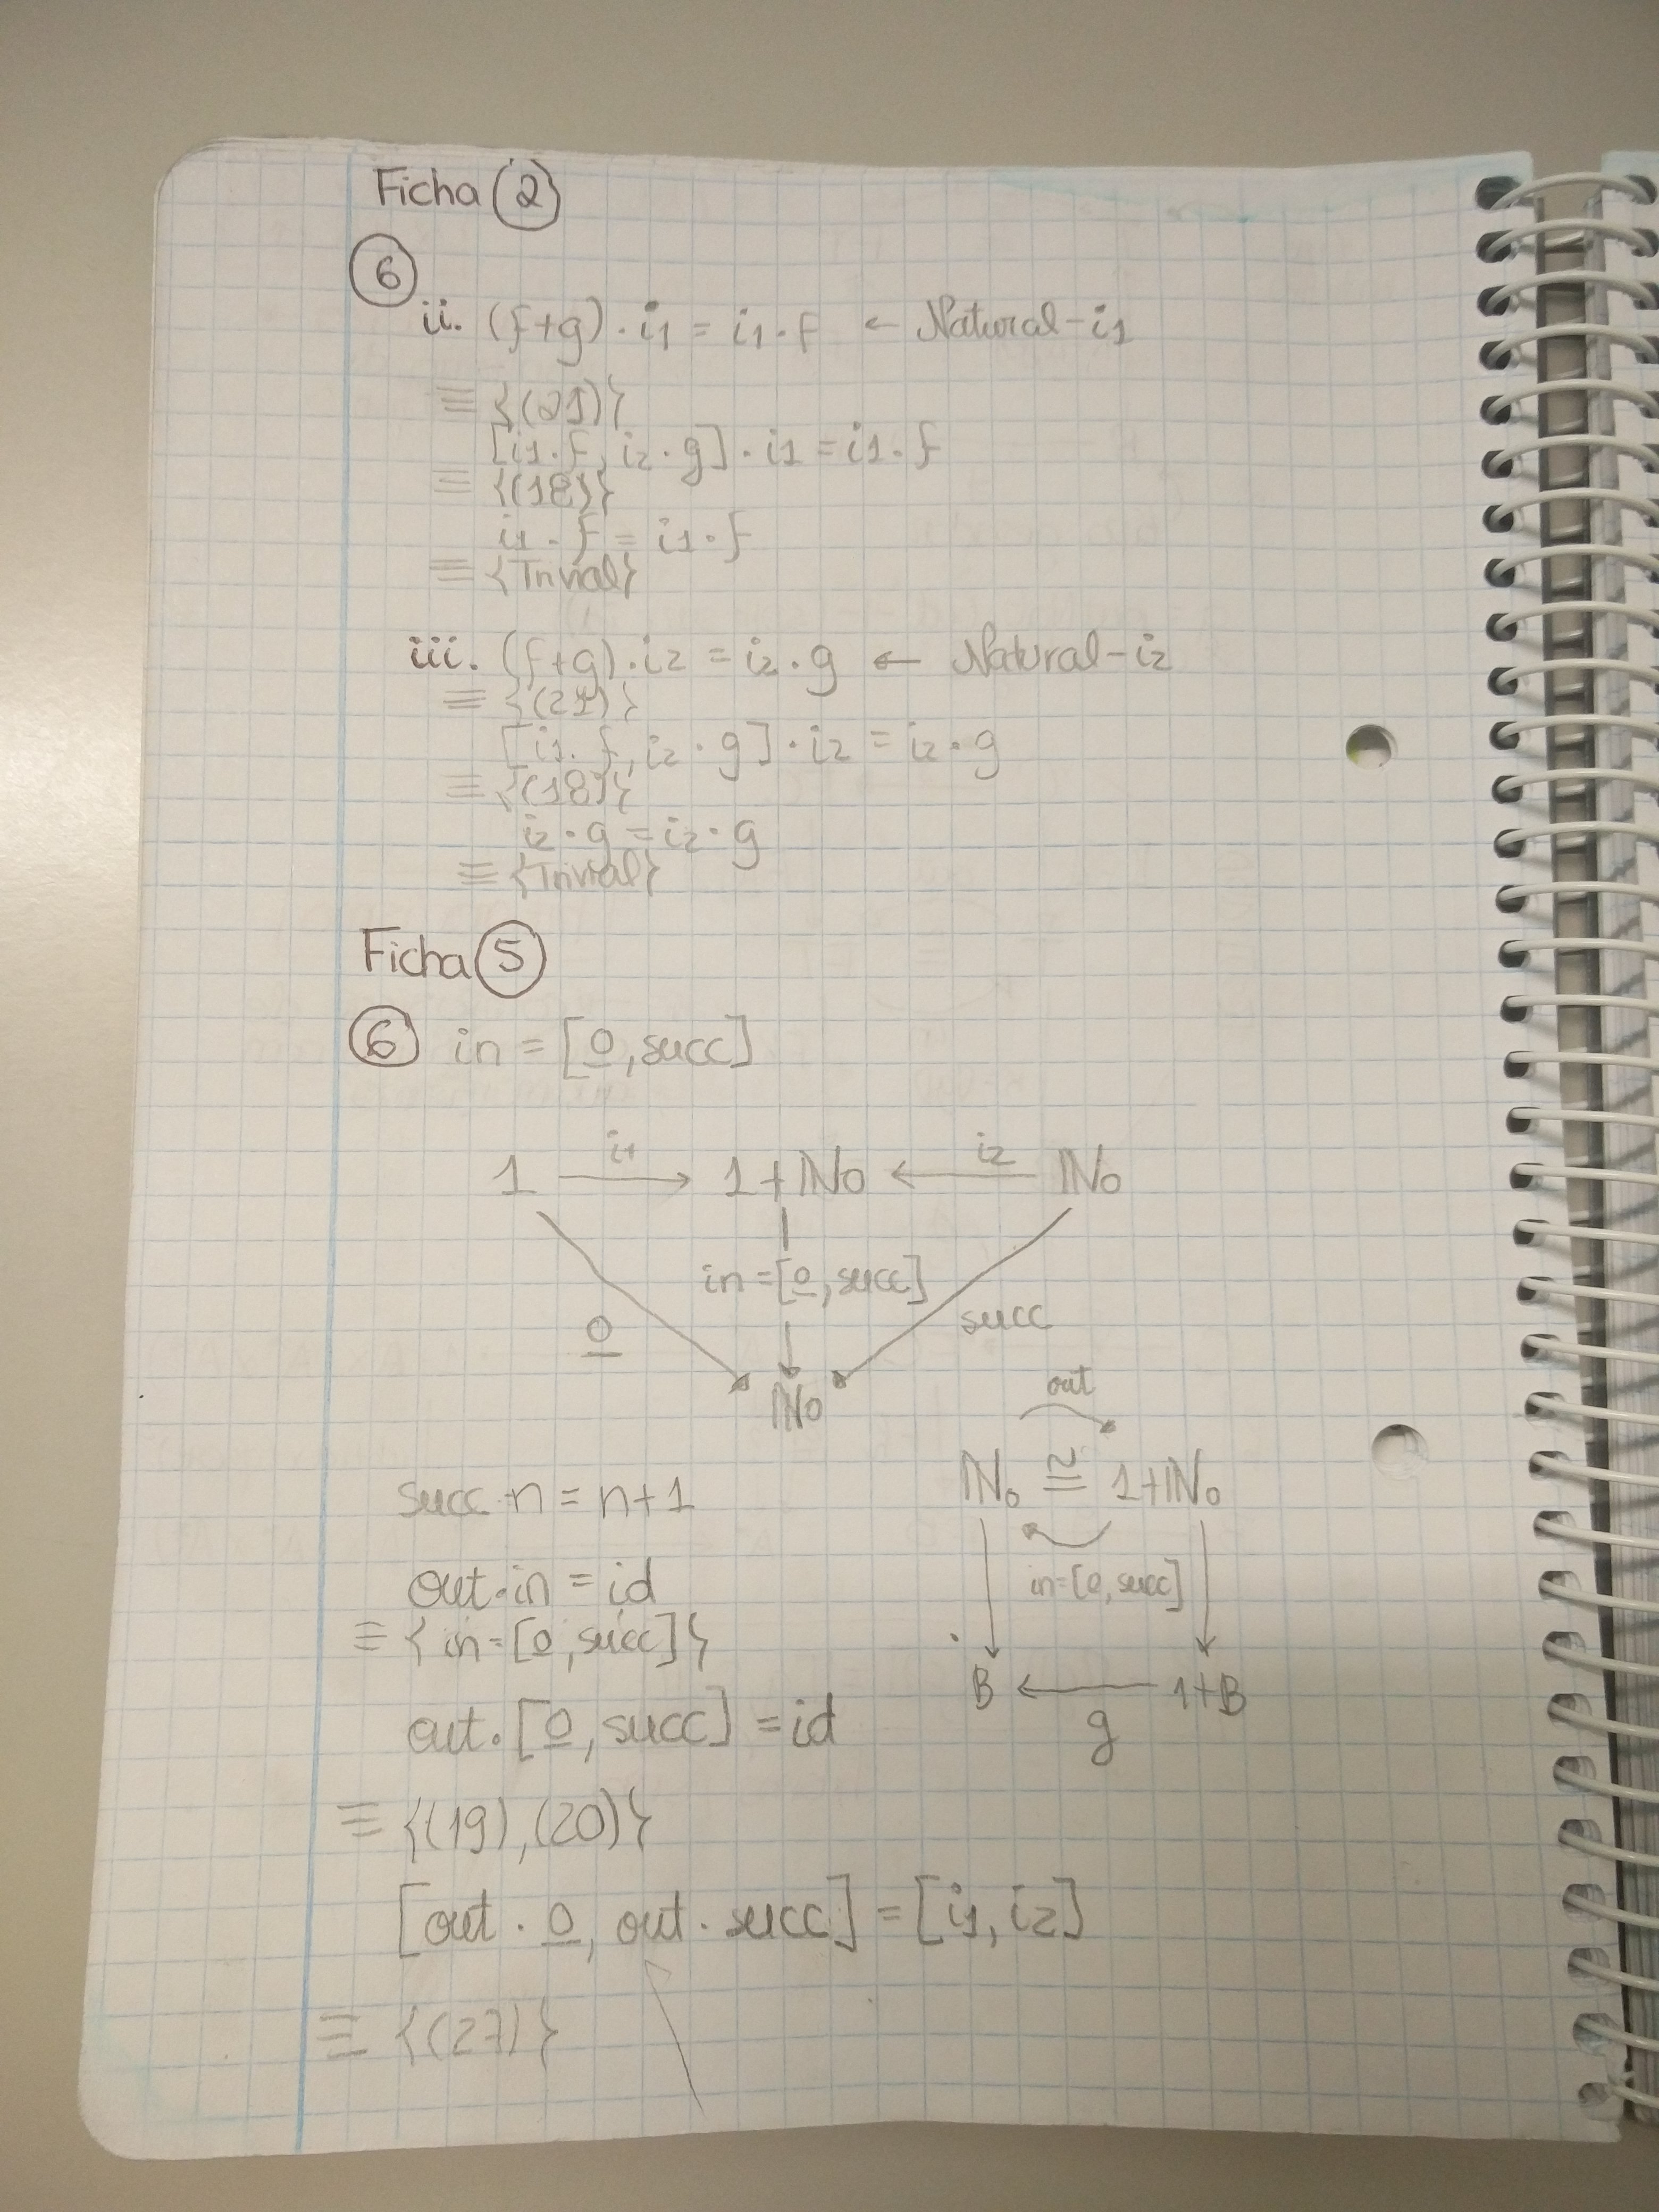 Ficha (2)
(6)
ii. (f+g) · i1 = i1 · f ← Natural-i1
≡ {(21)}
[i1 · f, i2 · g] · i1 = i1 · f
≡ {(18)}
i1 · f = i1 · f
≡ {Trivial}
iii. (f+g) · i2 = i2 · g ← Natural-i2
≡ {(21)}
[i1 · f, i2 · g] · i2 = i2 · g
≡ {(18)}
i2 · g = i2 · g
≡ {Trivial}
Ficha (5)
(6) in = [0, succ]
i1 i2
1 → 1 + ℕ0 ← ℕ0
in = [0, succ]
0 succ
ℕ0
out
ℕ0 ≅ 1+ℕ0
in=[0, succ]
B ← 1+B
g
succ n = n+1
out · in = id
≡ { in = [0, succ] }
out · [0, succ] = id
≡ {(19), (20)}
[out · 0, out · succ] = [i1, i2]
≡ {(27)}